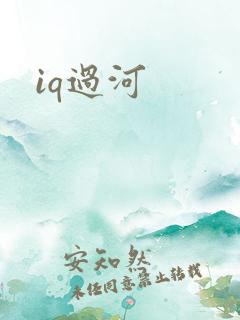 iq過河
安知然
未经同意禁止转载